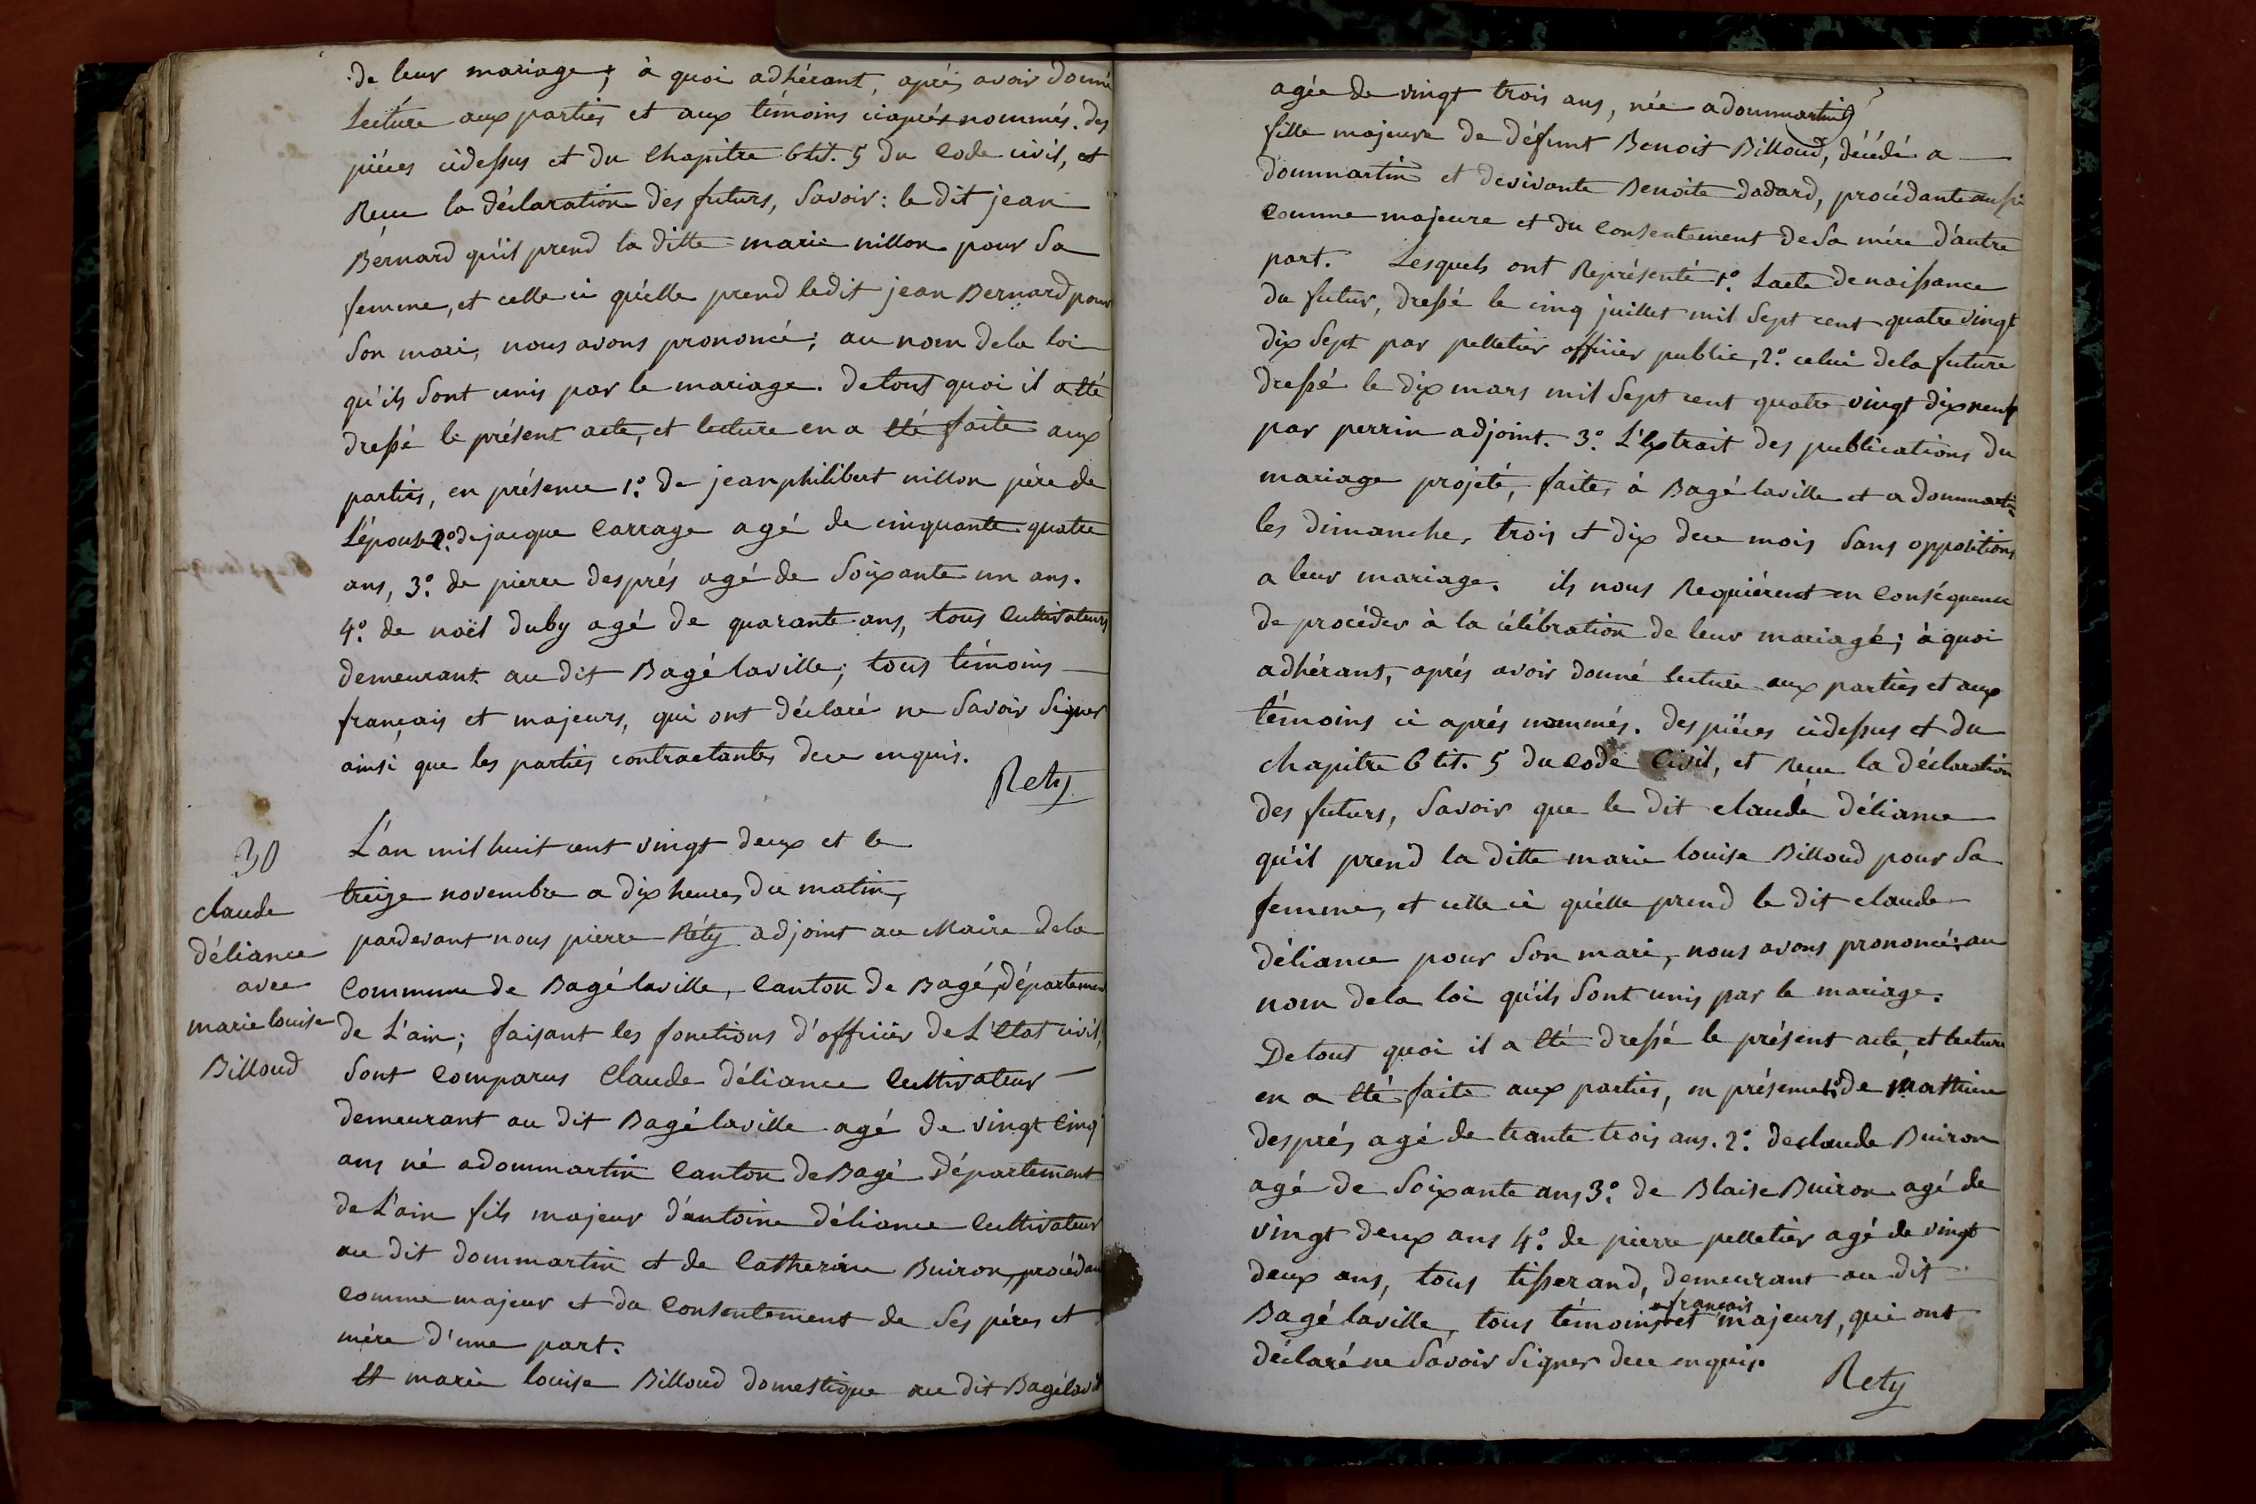 de leur mariage; à quoi adhérant, aprés avoir donné
Lecture aux parties et aux témoins ciaprés nommés. des
piéces cidessus et du Chapitre 6 tit. 5 du Code civil, et
Recu la déclaration des futurs, Savoir: le dit jean
Bernard qu'il prend la ditte marie nillon pour Sa
femme, et celle ci qu'elle prend ledit jean Bernard pour
Son mari, nous avons prononcé; au nom dela loi
qu'ils Sont unis par le mariage. detout quoi il a été
dressé le présent acte, et lecture en a été faite aux
parties, en présence 1.º de jeanphilibert nillon pére de
L'épouse 2.º de jacque Carrage agé de cinquante quatre
ans, 3.º de pierre després agé de Soixante un ans.
4.º de noël duby agé de quarante ans, tous Cultivateurs
demeurant au dit Bagé laville; tous témoins
français et majeurs, qui ont déclaré ne Savoir Signer
ainsi que les parties contractantes dece enquis.
Rety
30
claude
déliance
avec
marie louise
Billoud
L'an mil huit cent vingt deux et le
treize novembre a dix heures du matin,
pardevant nous pierre Réty adjoint au Maire dela
Commune de Bagé laville, Canton de Bagé, département
de L'ain; faisant les fonctions d'officier de L'état civil,
Sont Comparus Claude déliance Cultivateur
demeurant au dit Bagé laville agé de vingt Cinq
ans né adommartin Canton de Bagé Département
de L'ain fils majeur d'antoine déliance Cultivateur
au dit dommartin et de Catherine Buiron, procédant
Comme majeur et du Consentement de Ses péres et
mére d'une part.
Et marie louise Billoud domestique au dit Bagélaville
agée de vingt trois ans, née adommartin
fille majeure de défunt Benoit Billoud, décédé a
dommartin et devivante Benoite dadard, procédante aussi
Comme majeure et du Consentement de Sa mére d'autre
part. Lesquels ont Représenté 1.º Lacte denaissance
du futur, dressé le cinq juillet mil Sept cent quatre vingt
dix Sept par pelletier officier public, 2.º celui dela future
dressé le dix mars mil Sept cent quatre vingt dixneuf
par perrin adjoint. 3.º L'Extrait des publications du
mariage projeté, faites à Bagé laville et a dommartin
les dimanches trois et dix dece mois Sans oppositions
a leur mariage. ils nous Requiérent en Conséquence
de procéder à la célébration de leur mariage; à quoi
adhérant, aprés avoir donné lecture aux parties et aux
témoins ci aprés nommés. des piéces cidessus et du
chapitre 6 tit. 5 du Code Civil, et Recu la déclaration
des futurs, Savoir que le dit claude déliance
qu'il prend la ditte marie louise Billoud pour Sa
femme, et celle ci qu'elle prend le dit claude
déliance pour Son mari, nous avons prononcé; au
nom dela loi qu'ils Sont unis par le mariage.
De tout quoi il a été dressé le présent acte, et lecture
en a été faite aux parties, en présence 1.º de Mathieu
després agé de trante trois ans. 2.º declaude Buiron
agé de Soixante ans, 3.º de Blaise Buiron agé de
vingt deux ans 4.º de pierre pelletier agé de vingt
deux ans, tous tisserand, demeurant au dit
Bagé laville, tous témoins français et majeurs, qui ont
déclaré ne Savoir Signer dece enquis.
Rety